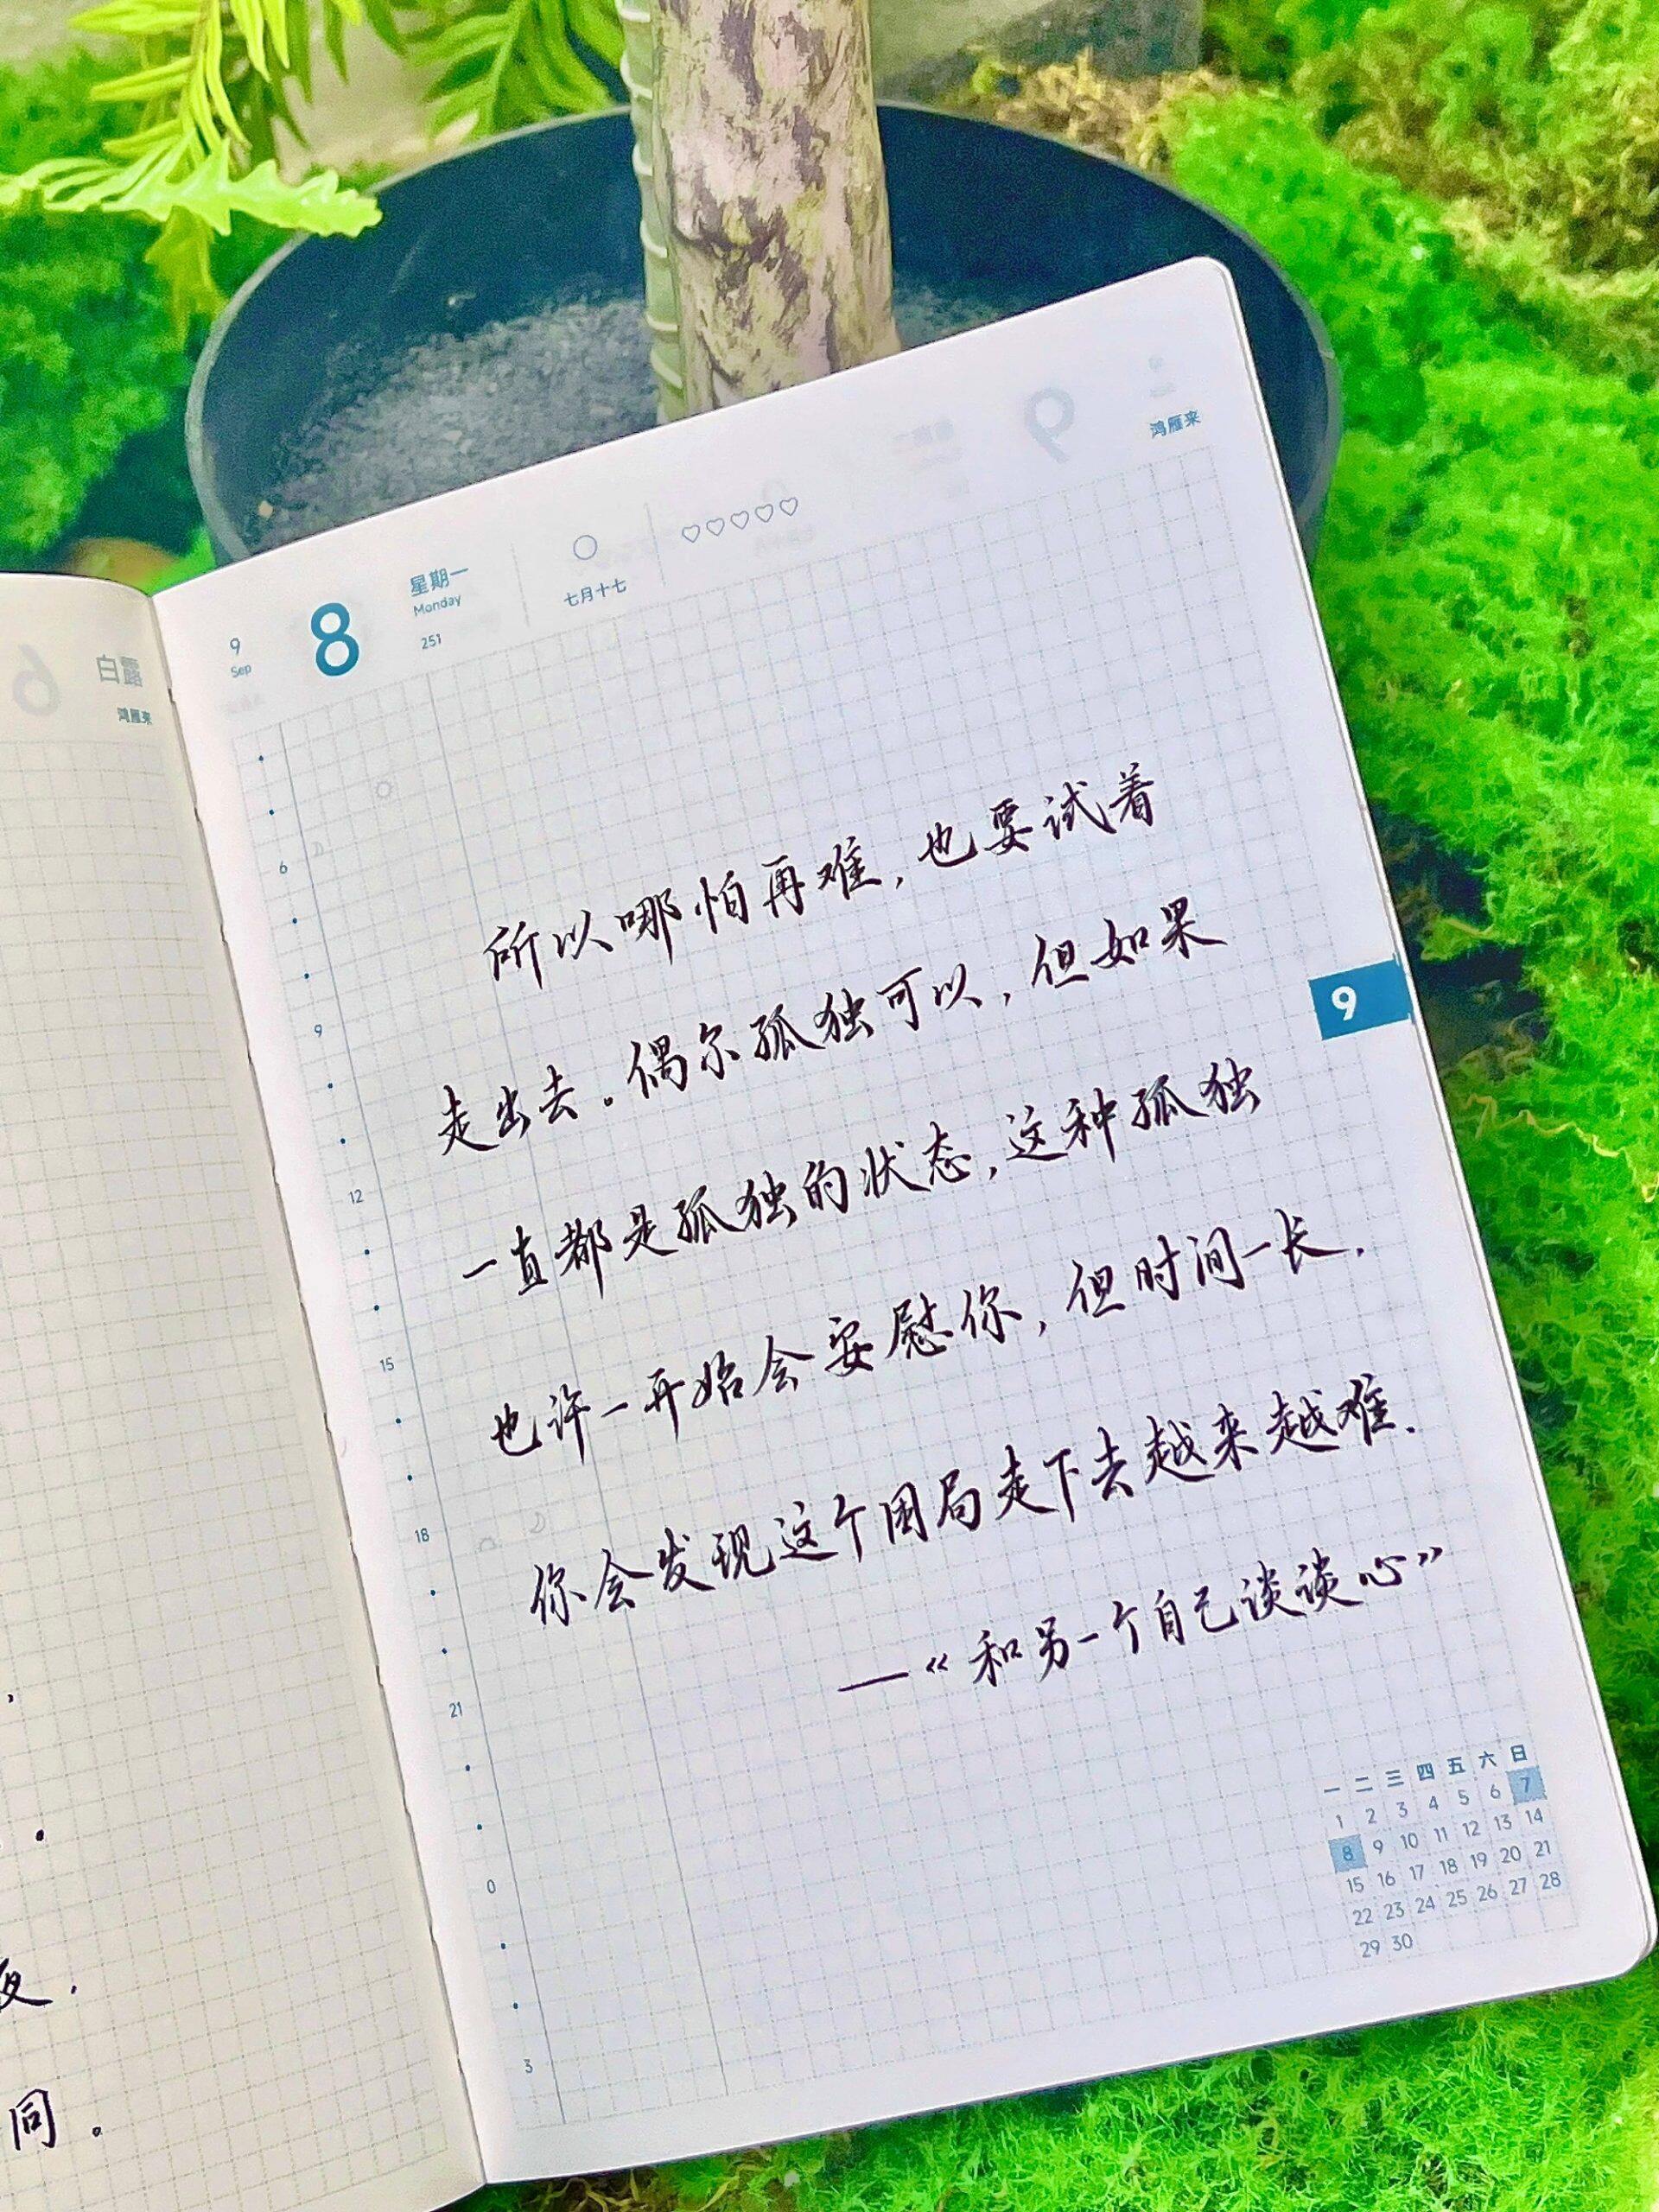 白露
鸿雁来
9
Sep
8
星期一
Monday
251
七月十七
鸿雁来
所以哪怕再难，也要试着
走出去。偶尔孤独可以，但如果
一直都是孤独的状态，这种孤独
也许一开始会安慰你，但时间一长，
你会发现这个困局走下去越来越难。
——《和另一个自己谈谈心》
9
6
9
12
15
18
21
0
3
一 二 三 四 五 六 日
1 2 3 4 5 6 7
8 9 10 11 12 13 14
15 16 17 18 19 20 21
22 23 24 25 26 27 28
29 30
同。